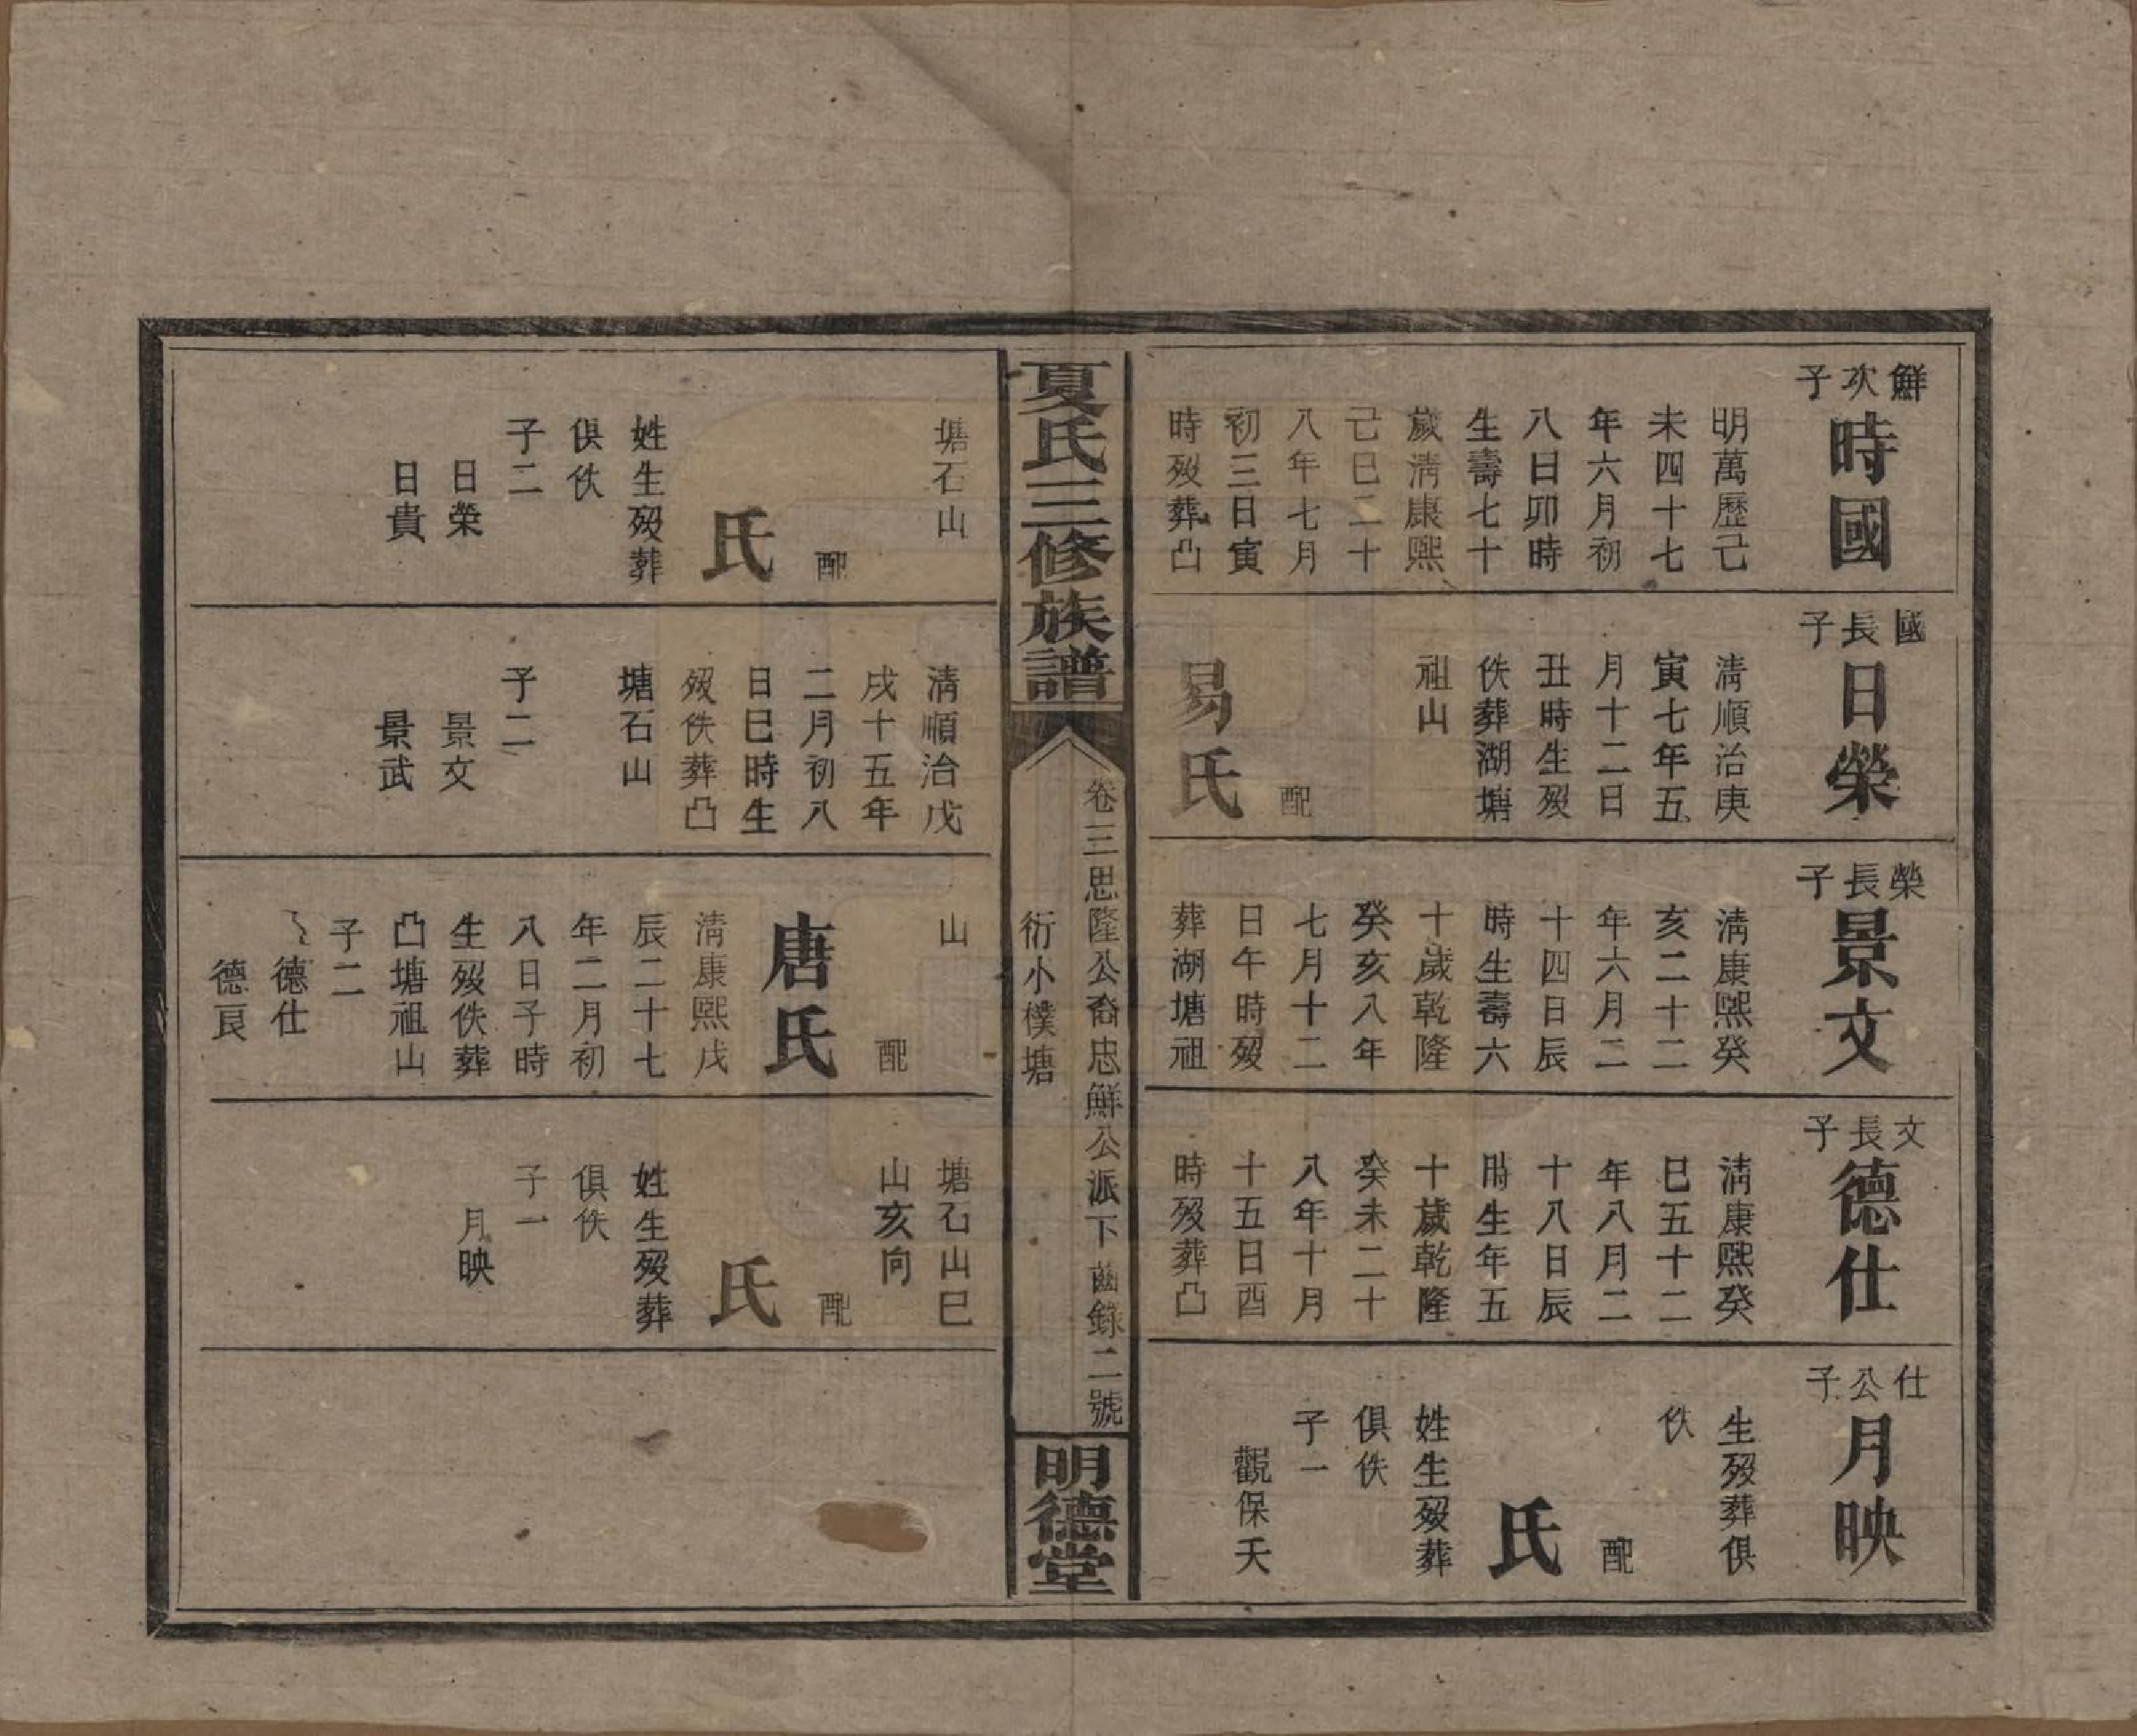 鮮次子
時國
明萬歷己
未四十七
年六月初
八日卯時
生壽七十
歲淸康熙
己巳二十
八年七月
初三日寅
時歿葬凸
國長子
日榮
淸順治庚
寅七年五
月十二日
丑時生歿
佚葬湖塘
祖山
配
易氏
榮長子
景文
淸康熙癸
亥二十二
年六月二
十四日辰
時生壽六
十歲乾隆
癸亥八年
七月十二
日午時歿
葬湖塘祖
文長子
德仕
淸康熙癸
巳五十二
年八月二
十八日辰
時生年五
十歲乾隆
癸未二十
八年十月
十五日酉
時歿葬凸
仕公子
月映
生歿葬俱
佚
配
氏
姓生歿葬
俱佚
子一
觀保夭
夏氏三修族譜
卷三思隆公裔忠鮮公派下 齒錄二號
衍小樸塘
明德堂
塘石山
配
氏
姓生歿葬
俱佚
子二
日榮
日貴
淸順治戊
戌十五年
二月初八
日巳時生
歿佚葬凸
塘石山
子二
景文
景武
山
配
唐氏
淸康熙戊
辰二十七
年二月初
八日子時
生歿佚葬
凸塘祖山
子二
德仕
德良
塘石山巳
山亥向
配
氏
姓生歿葬
俱佚
子一
月映